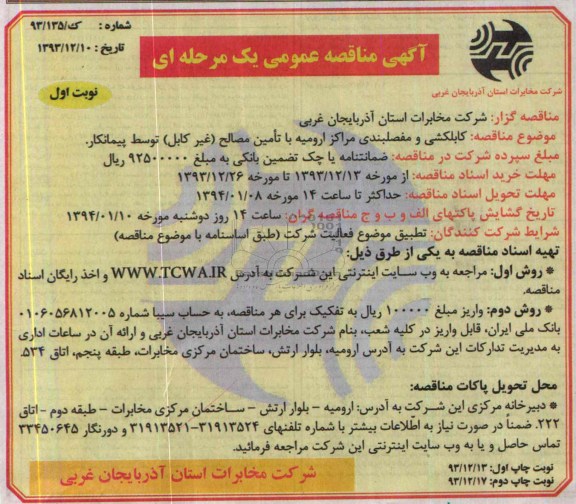 شماره : ۹۳/۱۳۵/ک
تاریخ : ۱۳۹۳/۱۲/۱۰
آگهی مناقصه عمومی یک مرحله ای
شرکت مخابرات استان آذربایجان غربی
نوبت اول
مناقصه گزار: شرکت مخابرات استان آذربایجان غربی
موضوع مناقصه: کابلکشی و مفصلبندی مراکز ارومیه با تأمین مصالح (غیر کابل) توسط پیمانکار.
مبلغ سپرده شرکت در مناقصه: ضمانتنامه یا چک تضمین بانکی به مبلغ ۹۲۵۰۰۰۰۰ ریال
مهلت خرید اسناد مناقصه: از مورخه ۱۳۹۳/۱۲/۱۳ تا مورخه ۱۳۹۳/۱۲/۲۶
مهلت تحویل اسناد مناقصه: حداکثر تا ساعت ۱۴ مورخه ۱۳۹۴/۰۱/۰۸
تاریخ گشایش پاکتهای الف و ب و ج مناقصه گران: ساعت ۱۴ روز دوشنبه مورخه ۱۳۹۴/۰۱/۱۰
شرایط شرکت کنندگان: تطبیق موضوع فعالیت شرکت (طبق اساسنامه با موضوع مناقصه)
تهیه اسناد مناقصه به یکی از طرق ذیل:
* روش اول: مراجعه به وب سایت اینترنتی این شرکت به آدرس WWW.TCWA.IR و اخذ رایگان اسناد
مناقصه.
* روش دوم: واریز مبلغ ۱۰۰۰۰۰ ریال به تفکیک برای هر مناقصه، به حساب سیبا شماره ۰۱۰۶۰۵۶۸۱۲۰۰۵
بانک ملی ایران، قابل واریز در کلیه شعب، بنام شرکت مخابرات استان آذربایجان غربی و ارائه آن در ساعات اداری
به مدیریت تدارکات این شرکت به آدرس ارومیه، بلوار ارتش، ساختمان مرکزی مخابرات، طبقه پنجم، اتاق ۵۳۴.
محل تحویل پاکات مناقصه:
* دبیرخانه مرکزی این شرکت به آدرس: ارومیه - بلوار ارتش - ساختمان مرکزی مخابرات - طبقه دوم - اتاق
۲۲۲. ضمناً در صورت نیاز به اطلاعات بیشتر با شماره تلفنهای ۳۱۹۱۳۵۲۴-۳۱۹۱۳۵۲۱ و دورنگار ۳۳۴۵۰۶۴۵
تماس حاصل و یا به وب سایت اینترنتی این شرکت مراجعه فرمائید.
نوبت چاپ اول: ۹۳/۱۲/۱۳
نوبت چاپ دوم: ۹۳/۱۲/۱۷
شرکت مخابرات استان آذربایجان غربی